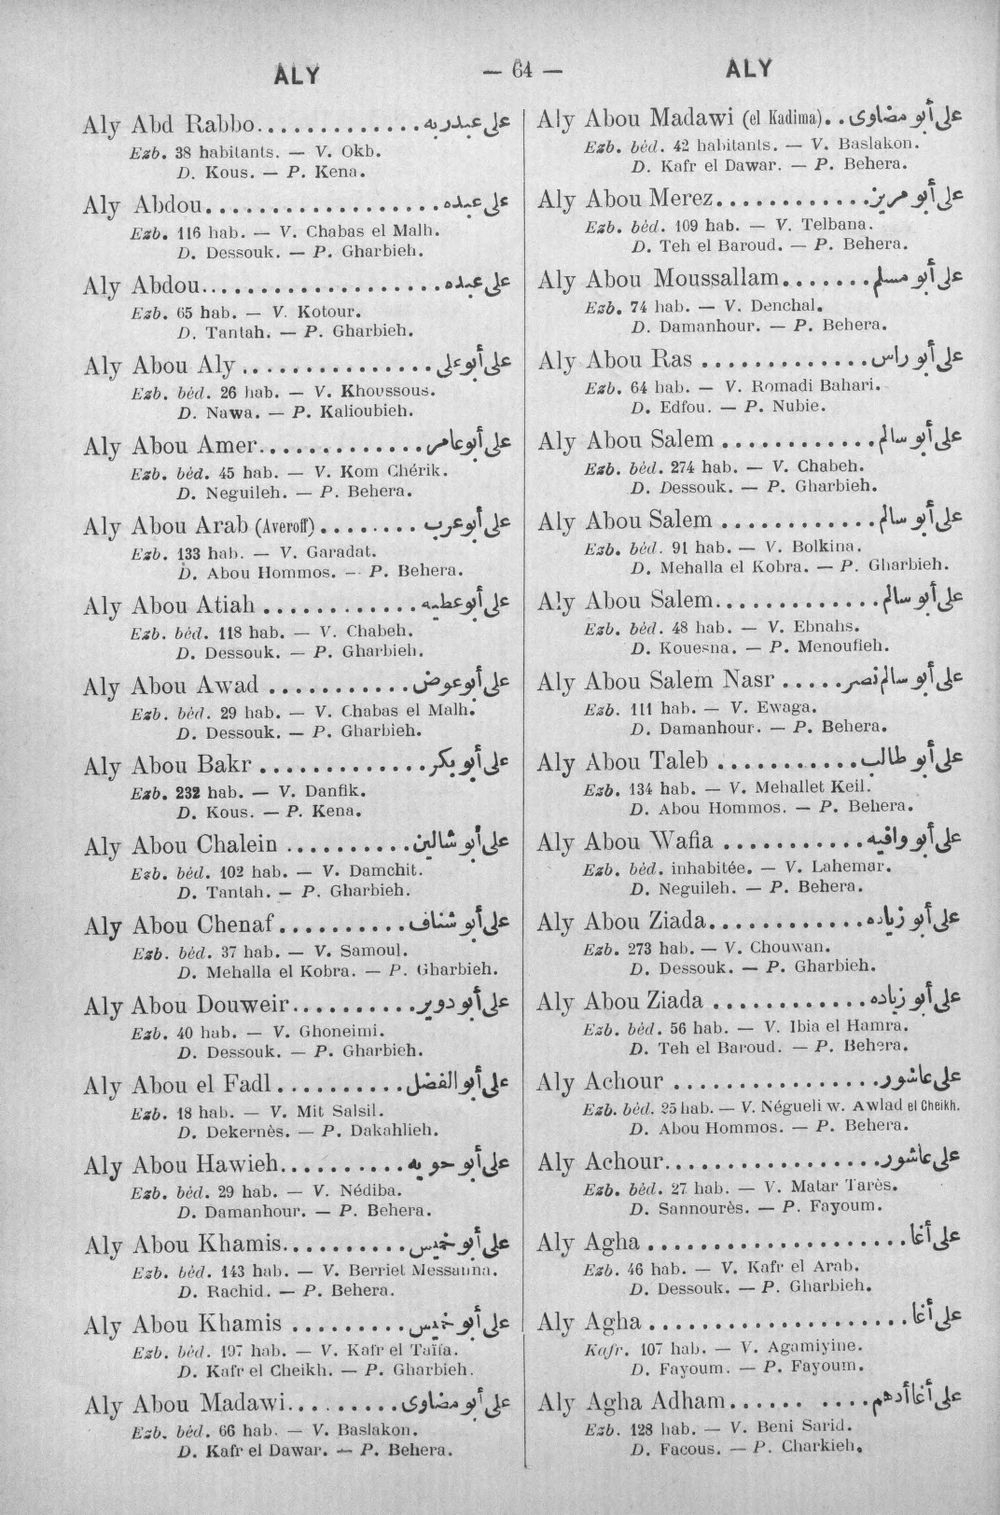 ALY
— 64 —
ALY
Aly Abd Rabbo.............على عبدربه
Ezb. 38 habitants. — V. Okb.
D. Kous. — P. Kena.
Aly Abdou..................على عبده
Ezb. 116 hab. — V. Chabas el Malh.
D. Dessouk. — P. Gharbieh.
Aly Abdou..................على عبده
Ezb. 65 hab. — V. Kotour.
D. Tantah. — P. Gharbieh.
Aly Abou Aly...............على أبو على
Ezb. béd. 26 hab. — V. Khoussous.
D. Nawa. — P. Kalioubieh.
Aly Abou Amer.............على أبو عامر
Ezb. béd. 45 hab. — V. Kom Chérik.
D. Neguileh. — P. Behera.
Aly Abou Arab (Averoff)........على أبو عرب
Ezb. 133 hab. — V. Garadat.
D. Abou Hommos. — P. Behera.
Aly Abou Atiah............على أبو عطيه
Ezb. béd. 118 hab. — V. Chabeh.
D. Dessouk. — P. Gharbieh.
Aly Abou Awad...........على أبو عوض
Ezb. béd. 29 hab. — V. Chabas el Malh.
D. Dessouk. — P. Gharbieh.
Aly Abou Bakr.............على أبو بكر
Ezb. 232 hab. — V. Danfik.
D. Kous. — P. Kena.
Aly Abou Chalein..........على أبو شالين
Ezb. béd. 102 hab. — V. Damchit.
D. Tantah. — P. Gharbieh.
Aly Abou Chenaf..........على أبو شناف
Ezb. béd. 37 hab. — V. Samoul.
D. Mehalla el Kobra. — P. Gharbieh.
Aly Abou Douweir..........على أبو دوير
Ezb. 40 hab. — V. Ghoneimi.
D. Dessouk. — P. Gharbieh.
Aly Abou el Fadl..........على أبو الفضل
Ezb. 18 hab. — V. Mit Salsil.
D. Dekernès. — P. Dakahlieh.
Aly Abou Hawieh..........على أبو حويه
Ezb. béd. 29 hab. — V. Nédiba.
D. Damanhour. — P. Behera.
Aly Abou Khamis..........على أبو خميس
Ezb. béd. 143 hab. — V. Berriet Messanna.
D. Rachid. — P. Behera.
Aly Abou Khamis.........على أبو خميس
Ezb. béd. 197 hab. — V. Kafr el Taïfa.
D. Kafr el Cheikh. — P. Gharbieh.
Aly Abou Madawi.........على أبو مضاوى
Ezb. béd. 66 hab. — V. Baslakon.
D. Kafr el Dawar. — P. Behera.
Aly Abou Madawi (el Kadima)...على أبو مضاوى
Ezb. béd. 42 habitants. — V. Baslakon.
D. Kafr el Dawar. — P. Behera.
Aly Abou Merez............على أبو مريز
Ezb. béd. 109 hab. — V. Telbana.
D. Teh el Baroud. — P. Behera.
Aly Abou Moussallam.......على أبو مسلم
Ezb. 74 hab. — V. Denchal.
D. Damanhour. — P. Behera.
Aly Abou Ras.............على أبو راس
Ezb. 64 hab. — V. Romadi Bahari.
D. Edfou. — P. Nubie.
Aly Abou Salem............على أبو سالم
Ezb. béd. 274 hab. — V. Chabeh.
D. Dessouk. — P. Gharbieh.
Aly Abou Salem............على أبو سالم
Ezb. béd. 91 hab. — V. Bolkina.
D. Mehalla el Kobra. — P. Gharbieh.
Aly Abou Salem.............على أبو سالم
Ezb. béd. 48 hab. — V. Ebnahs.
D. Kouesna. — P. Menoufieh.
Aly Abou Salem Nasr.....على أبو سالم نصر
Ezb. 111 hab. — V. Ewaga.
D. Damanhour. — P. Behera.
Aly Abou Taleb...........على أبو طالب
Ezb. 134 hab. — V. Mehallet Keil.
D. Abou Hommos. — P. Behera.
Aly Abou Wafia...........على أبو وافيه
Ezb. béd. inhabitée. — V. Lahemar.
D. Neguileh. — P. Behera.
Aly Abou Ziada............على أبو زياده
Ezb. 273 hab. — V. Chouwan.
D. Dessouk. — P. Gharbieh.
Aly Abou Ziada............على أبو زياده
Ezb. béd. 56 hab. — V. Ibia el Hamra.
D. Teh el Baroud. — P. Behera.
Aly Achour...............على عاشور
Ezb. béd. 25 hab. — V. Négueli w. Awlad el Cheikh.
D. Abou Hommos. — P. Behera.
Aly Achour................على عاشور
Ezb. béd. 27 hab. — V. Matar Tarès.
D. Sannourès. — P. Fayoum.
Aly Agha....................على أغا
Ezb. 46 hab. — V. Kafr el Arab.
D. Dessouk. — P. Gharbieh.
Aly Agha....................على أغا
Kafr. 107 hab. — V. Agamiyine.
D. Fayoum. — P. Fayoum.
Aly Agha Adham...... ....على أغا أدهم
Ezb. 128 hab. — V. Beni Sarid.
D. Facous. — P. Charkieh.